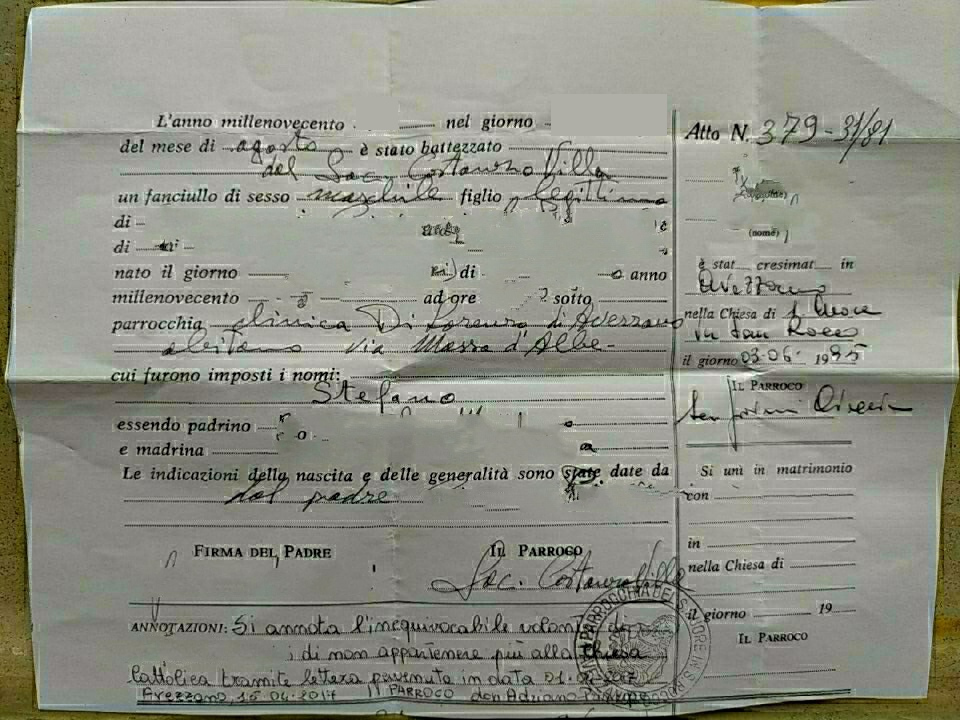 L'anno millenovecento nel giorno
del mese di agosto è stato battezzato
dal Sac. Costanzo Villa
un fanciullo di sesso maschile figlio legittimo
di
di
nato il giorno di anno
millenovecento ad ore sotto
parrocchia clinica Di Lorenzo di Avezzano
abitano via Massa d'Albe
cui furono imposti i nomi:
Stefano
essendo padrino
e madrina
Le indicazioni della nascita e delle generalità sono state date da
dal padre
FIRMA DEL PADRE IL PARROCO
Sac. Costanzo Villa
ANNOTAZIONI: Si annota l'inequivocabile volontà
di non appartenere più alla Chiesa
Cattolica tramite lettera pervenuta in data
Avezzano, 15.04.2017 Il PARROCO don Adriano
Atto N. 379-31/81
(nome)
è stat cresimat in
Avezzano
nella Chiesa di
in San Rocco
il giorno 03-06- 1995
IL PARROCO
Si uni in matrimonio
con
in
nella Chiesa di
il giorno 19
IL PARROCO